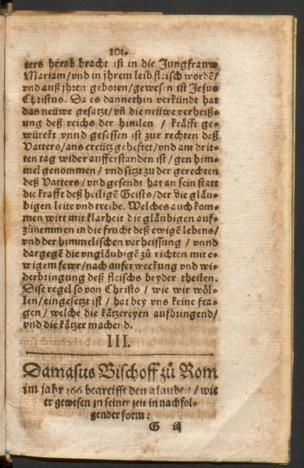 101.
ters herab bracht ist in die Jungfraw
Mariam/vnd in jhrem leib fleisch wordē/
vnd auß jhren geboren/gewesen ist Jesus
Christus. Da es dannethin verkündt hat
das neüwe gesatze/vñ die neüwe verheiß=
ung deß reichs der himlen / kräfft ge=
würckt vnnd gesessen ist zur rechten deß
Vatters/ans creütz gehefftet/vnd am drit=
ten tag wider aufferstanden ist/gen him=
mel genommen / vnd sitzt zu der gerechten
deß Vatters / vnd gesendt hat an sein statt
die krafft deß heiligē Geists/der die gläu=
bigen leit vnd treibe. Welches auch kom=
men wirt mit klarheit die gläubigen auf=
zůnemmen in die frucht deß ewigē lebens/
vnd der himmelischen verheissung / vnnd
dargegē die vngläubigē zů richten mit e=
wigem fewr/nach aufferweckung vnd wi=
derbringung deß fleischs beyder theilen.
Dise regel so von Christo / wie wir wöl=
len/eingesetzt ist / hat bey vns keine fra=
gen / welche die kätzereyen aufbringend/
vnd die kätzer machend.
III.
Damasus Bischoff zů Rom
im jahr 366 begreifft den glauben / wie
er gewesen zu seiner zeit in nachfol=
gender form:
G iij